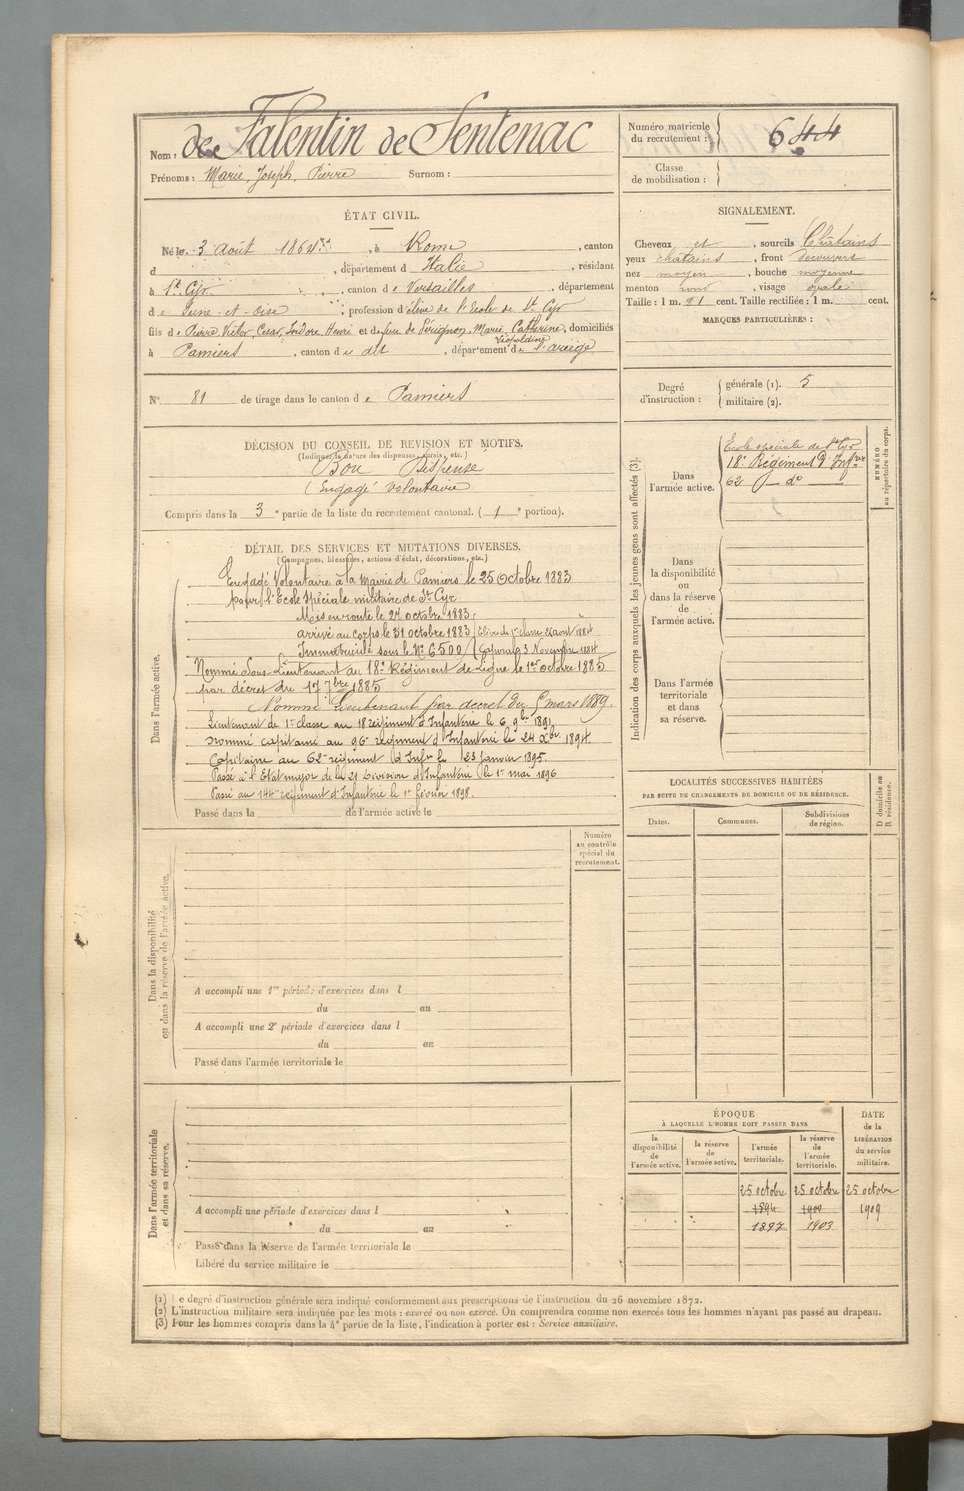 Nom : de Falentin de Sentenac
Prénoms : Marie, Joseph, Pierre Surnom :
Numéro matricule du recrutement : 644
Classe de mobilisation :
ÉTAT CIVIL.
Né le 3 Août 1864, à Rome, canton
d , département d Italie, résidant
à St Cyr, canton de Versailles, département
de Seine-et-Oise; profession d'élève de l'Ecole de St Cyr
fils de Pierre, Victor, Cesar, Isidore, Henri et de feu de Pérignon, Marie, Catherine, Léopoldine, domiciliés
à Pamiers, canton du dit, département de l'ariège
N° 81 de tirage dans le canton de Pamiers
DÉCISION DU CONSEIL DE REVISION ET MOTIFS.
(Indiquer la nature des dispenses, sursis, etc.)
Bon Dispensé
(Engagé volontaire
Compris dans la 3e partie de la liste du recrutement cantonal. (1e portion).
DÉTAIL DES SERVICES ET MUTATIONS DIVERSES.
(Campagnes, blessures, actions d'éclat, décorations, etc.)
Dans l'armée active.
Engagé Volontaire à la Mairie de Pamiers le 25 Octobre 1883
pour l'Ecole Spéciale militaire de St Cyr
Mis en route le 27 octobre 1883,
arrivé au corps le 31 octobre 1883 Elève de 1re classe 22 aout 1884
Immatriculé sous le No 6500 Caporal 3 Novembre 1884
Nommé Sous-Lieutenant au 18e Régiment de Ligne le 1er octobre 1885
par décret du 17 7bre 1885
Nommé Lieutenant par décret du 5 mars 1889.
Lieutenant de 1re classe au 18 régiment d'Infanterie le 6 9bre 1891
Nommé capitaine au 96e régiment d'Infanterie le 24 Xbr 1894.
Capitaine au 62e régiment d'Infie le 23 janvier 1895.
Passé à l'Etat major de la 21 Division d'Infanterie le 1er mai 1896
Passé au 144e régiment d'Infanterie le 1er Février 1898.
Passé dans la de l'armée active le
Dans la disponibilité ou dans la réserve de l'armée active.
Numéro au contrôle spécial du recrutement.
A accompli une 1re période d'exercices dans l
du au
A accompli une 2e période d'exercices dans l
du au
Passé dans l'armée territoriale le
Dans l'armée territoriale et dans sa réserve.
A accompli une période d'exercices dans l
du au
Passé dans la réserve de l'armée territoriale le
Libéré du service militaire le
SIGNALEMENT.
Cheveux et, sourcils Châtains
yeux chatains, front découvert
nez moyen, bouche moyenne
menton rond, visage ovale
Taille : 1 m. 71 cent. Taille rectifiée : 1 m. cent.
MARQUES PARTICULIÈRES :
Degré d'instruction : générale (1). 5
militaire (2).
Indication des corps auxquels les jeunes gens sont affectés (3).
NUMÉRO au répertoire du corps.
Dans l'armée active.
Ecole spéciale de St Cyr
18e Régiment d'Infrie
62 do
Dans la disponibilité ou dans la réserve de l'armée active.
Dans l'armée territoriale et dans sa réserve.
LOCALITÉS SUCCESSIVES HABITÉES
PAR SUITE DE CHANGEMENTS DE DOMICILE OU DE RÉSIDENCE.
D domicile ou R résidence.
Dates. Communes. Subdivisions de région.
ÉPOQUE
À LAQUELLE L'HOMME DOIT PASSER DANS
la disponibilité de l'armée active.
la réserve de l'armée active.
l'armée territoriale.
la réserve de l'armée territoriale.
DATE de la LIBÉRATION du service militaire.
25 octobre 25 octobre 25 octobre
1894 1900 1909
1897 1903
(1) Le degré d'instruction générale sera indiqué conformément aux prescriptions de l'instruction du 26 novembre 1872.
(2) L'instruction militaire sera indiquée par les mots : exercé ou non exercé. On comprendra comme non exercés tous les hommes n'ayant pas passé au drapeau.
(3) Pour les hommes compris dans la 4e partie de la liste, l'indication à porter est : Service auxiliaire.